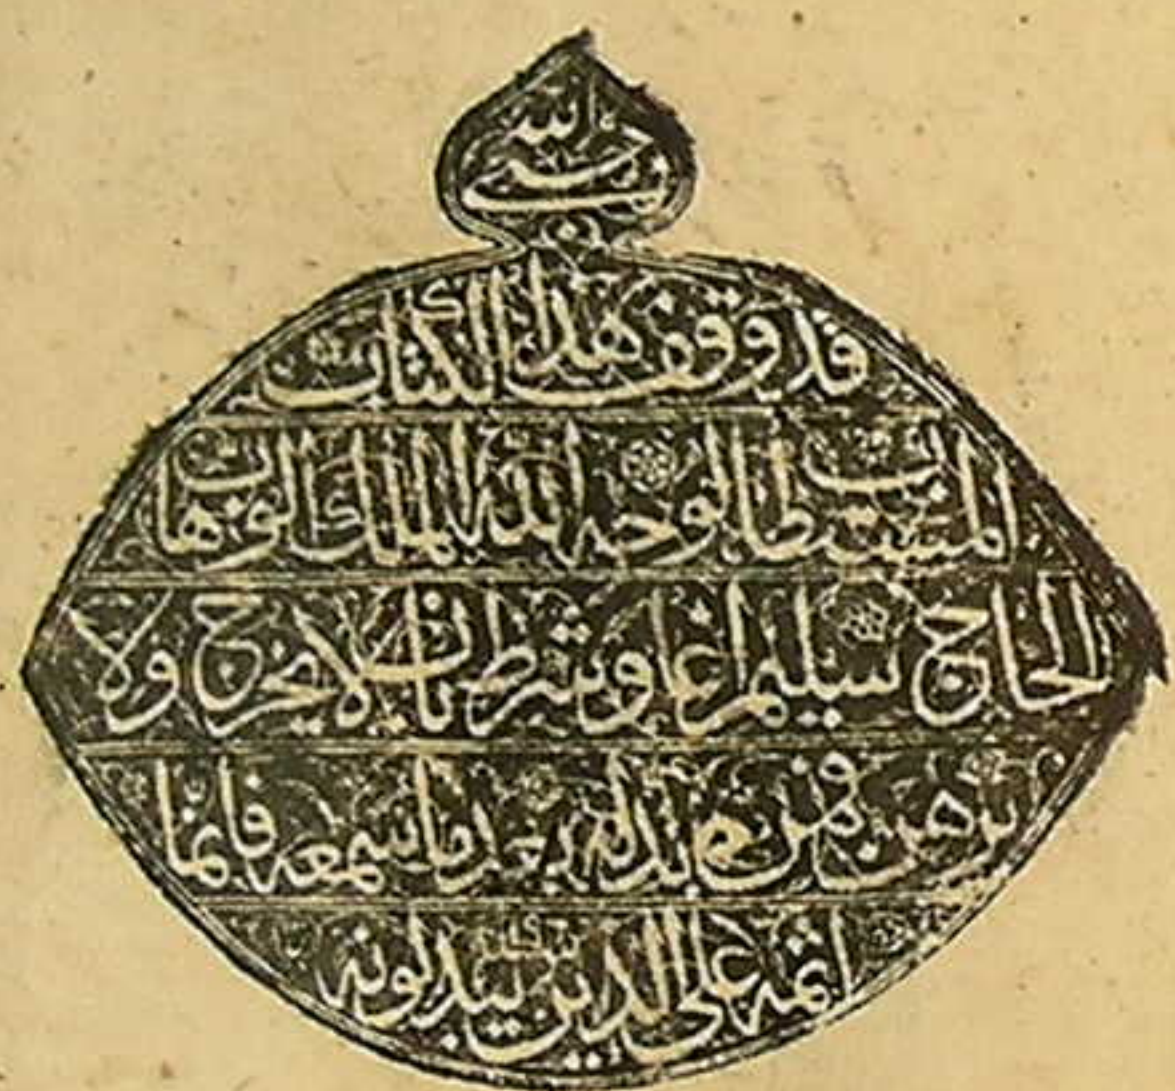 حسبي الله
قد وقف هذا الكتاب
المستطاب لوجه الله الملك الوهاب
الحاج سليم اغا وشرط ان لا يخرج ولا
يرهن فمن بدله بعد ما سمعه فانما
اثمه على الذين يبدلونه